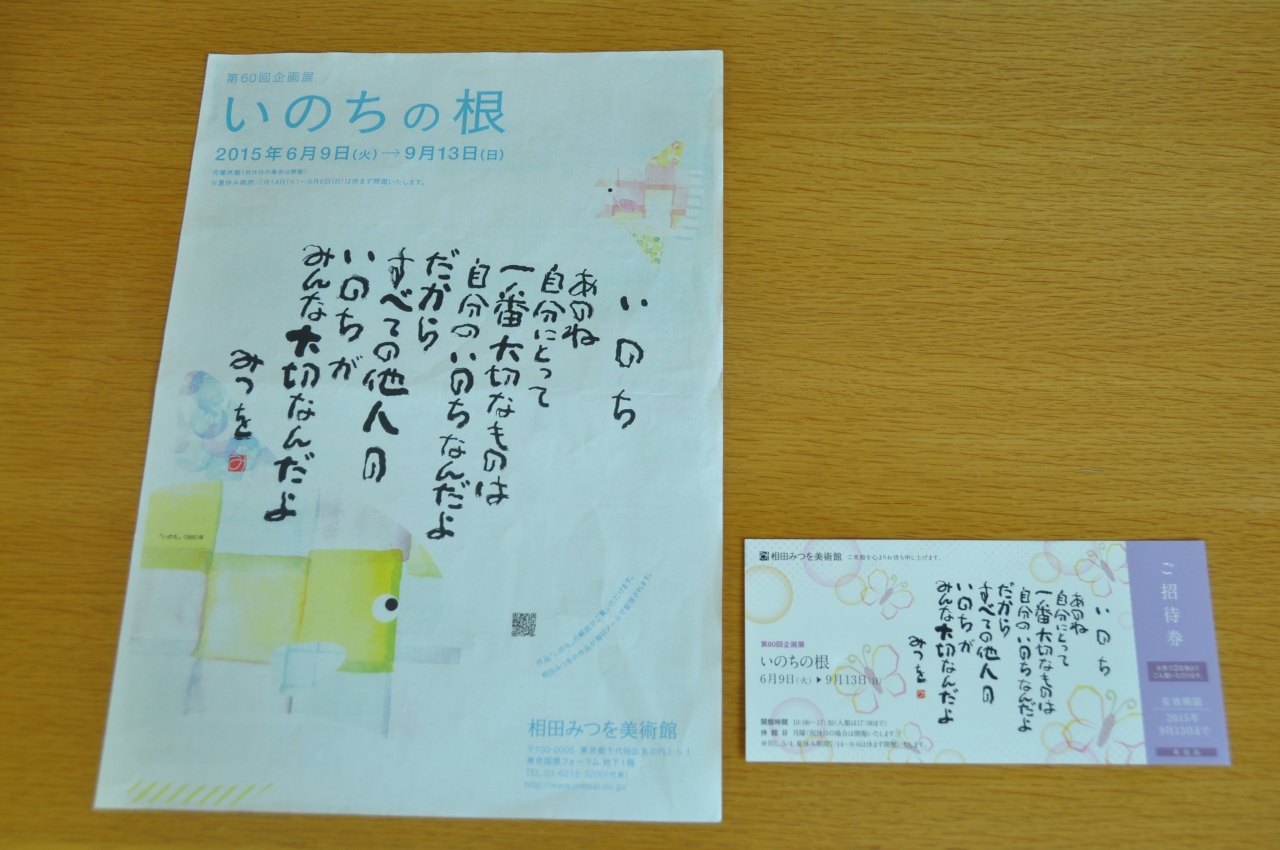 第60回企画展
いのちの根
2015年6月9日(火)→9月13日(日)
月曜休館(祝休日の場合は開館)
いのち
あのね
自分にとって
一番大切なものは
自分のいのちなんだよ
だから
すべての他人の
いのちが
みんな大切なんだよ
みつを
「いのち」
相田みつを美術館
〒100-0005 東京都千代田区丸の内3-5-1
東京国際フォーラム 地下1階
TEL.03-6212-3200(代表)
http://www.mitsuo.co.jp/
相田みつを美術館 ご来館を心よりお待ち申し上げます。
いのち
あのね
自分にとって
一番大切なものは
自分のいのちなんだよ
だから
すべての他人の
いのちが
みんな大切なんだよ
みつを
第60回企画展
いのちの根
6月9日(火)▶9月13日(日)
開館時間 10:00〜17:30(入館は17:00まで)
休館日 月曜(祝休日の場合は開館いたします。)
ご招待券
有効期限
2015年
9月13日まで